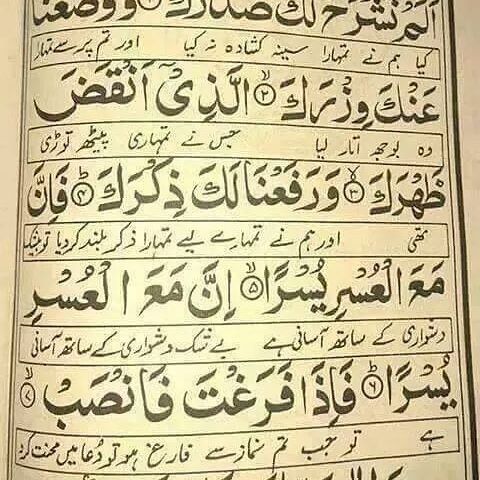 اَلَمْ نَشْرَحْ لَكَ صَدْرَكَ ۝۱ وَوَضَعْنَا
کیا ہم نے تمہارا سینہ کشادہ نہ کیا اور تم پر سے تمہارا
عَنْكَ وِزْرَكَ ۝۲ الَّذِیْۤ اَنْقَضَ
وہ بوجھ اتار لیا جس نے تمہاری پیٹھ توڑی
ظَهْرَكَ ۝۳ وَرَفَعْنَا لَكَ ذِكْرَكَ ۝۴ فَاِنَّ
تھی اور ہم نے تمہارے لیے تمہارا ذکر بلند کردیا تو بیشک
مَعَ الْعُسْرِ یُسْرًا ۝۵ اِنَّ مَعَ الْعُسْرِ
دشواری کے ساتھ آسانی ہے بے شک دشواری کے ساتھ آسانی
یُسْرًا ۝۶ فَاِذَا فَرَغْتَ فَانْصَبْ ۝۷
ہے تو جب تم نماز سے فارغ ہو تو دُعا میں محنت کرو